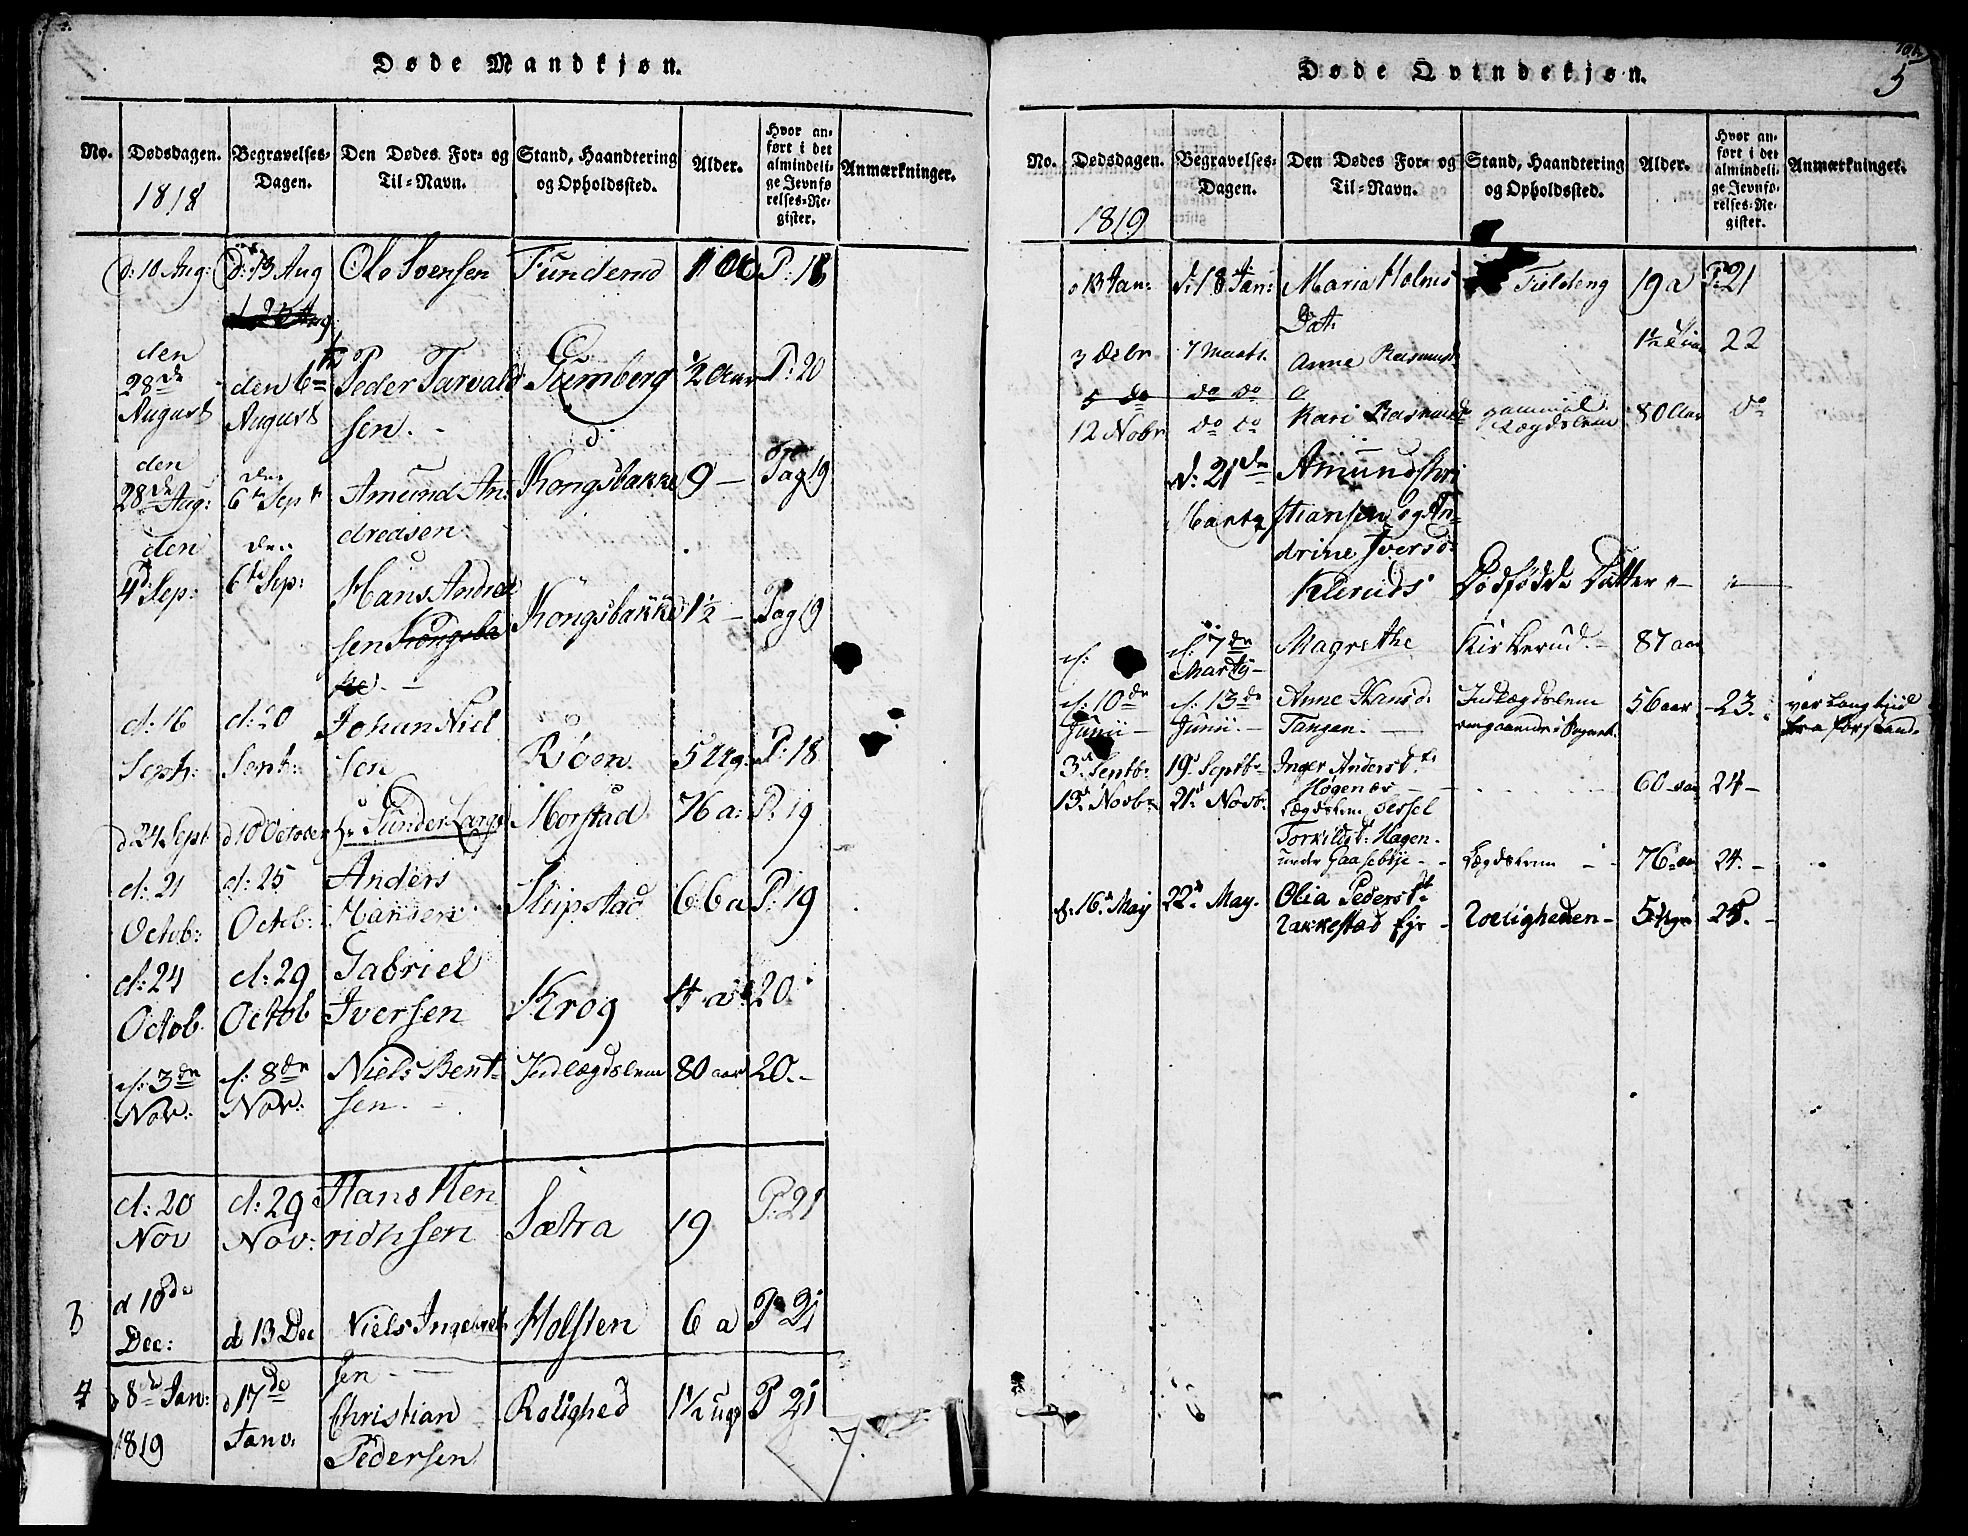 Døde Mandkjøn.
No. Dødsdagen. Begravelses-Dagen. Den Dødes For- og Til-Navn. Stand, Haandtering og Opholdssted. Alder. Hvor anført i det almindelige Jevnførelses-Register. Anmærkninger.
1818
d: 10 Aug: d: 13 Aug Ole Svensen P: 18
den 28de August den 6te August Peder Tarvald sen. - ½ Aar P: 20
den 28de Aug: den 6te Sept Amund An dreasen Kongsbakke 9 - Pag 19
den 4d: Sep: den 6te Sep: Hans Andre sen Kongsbakke 1½ - Pag 19
d: 16 Septr: d: 20 Sept: Johan Niel sen Röen 5 Ug: P: 18
d 24 Sept d 10 October Gunder Morstad 76 a: P: 19
d: 21 Octob: d: 25 Octob: Anders Hansen Slupstad 66 a P: 19
d: 24 Octob. d: 29 Octob Gabriel Iversen Krog 20.
d: 3de Nov: d: 8de Nov: Niels Bent- sen. - Indlægdslem 80 aar 20. -
d: 20 Nov d: 29 Nov: Hans Hen richsen Sætra 19 P: 21
3 d 10de Dec: d 13 Dec Niels Ingebret sen - Holsten 6 a P 21
4 d 8de Jan: 1819 d 17de Janv: Christian Pedersen Rolighed 1½ uge P 21
Døde Qvindekjøn.
5
No. Dødsdagen. Begravelses-Dagen. Den Dødes For- og Til-Navn. Stand, Haandtering og Opholdssted. Alder. Hvor anført i det almindelige Jevnførelses-Register. Anmærkninger.
1819
d 13 Jan: d: 18 Jan: Maria Holms Dat: Fieldeng 19 a P: 21
3 Debr 7 Marts Anne Rasmusd 22
5 do do do
12 Nobr do do Kari Rasmusd gammel Lægdslem 80 Aar do
d: 21de Martz Amund Kri stiansen og An- drine Iversd: Kleruds Dødfødde Datter " - " -
d: d: 7de Martz - Magrethe Kirkerud. - 87 aar
d: 10de Junii - d: 13de Junii. - Anne Hansd. Tangen. - Indlægdslem omgaaende i Sognet. 56 aar - 23. var lang tiid fra forstand.
3d Septbr 19d Septbr Inger Anderst. Høgenær - 60 aar 24 -
13d Novbr. 21d Novbr. Lægdslem Sessel Torkildst: Hagen. under Gaasebye - - Lægdslem - 76 aar 24. -
d. 16d May 22d May. Olia Pederst. Rakkestad Eje - Roeligheden - 5 Uger 25. -